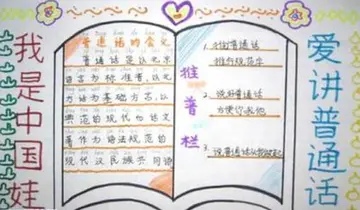 我是中国娃
普通话的含义
普通话是以北京
语言为标准音,以北
方话为基础方言,以
典范的现代白话文
著作为语法规范的
现代汉民族共同语
推普栏
1.推普通话
推行规范字
2.说好普通话
方便你我他
3.说普通话从我做起
爱讲普通话